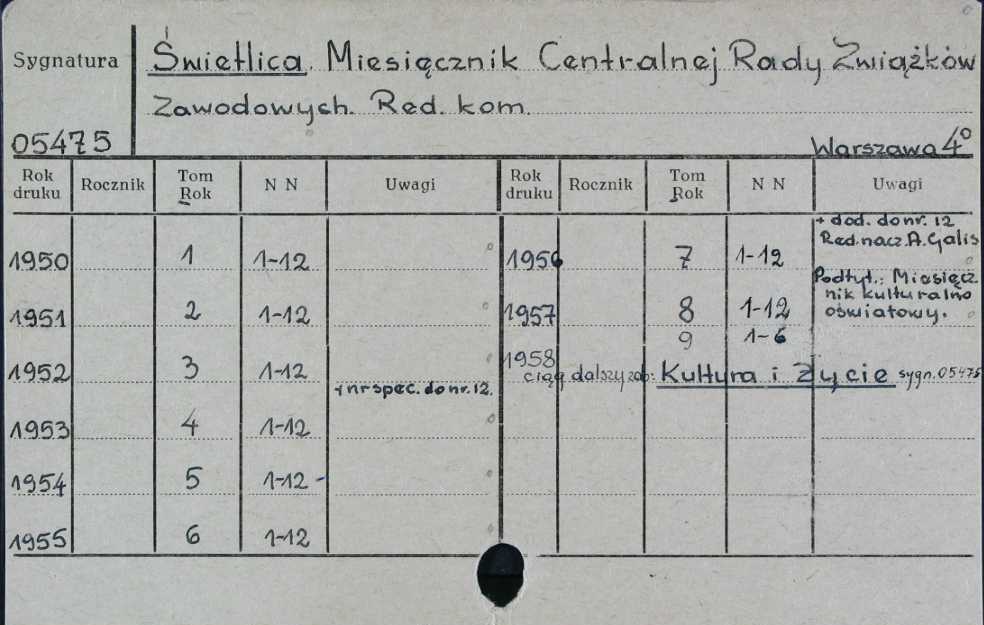 Sygnatura
Świetlica. Miesięcznik Centralnej Rady Związków
Zawodowych. Red. kom.
05475
Warszawa 4°
Rok druku Rocznik Tom Rok N N Uwagi Rok druku Rocznik Tom Rok N N Uwagi
1950 1 1-12
1951 2 1-12
1952 3 1-12
+ nr spec. do nr. 12.
1953 4 1-12
1954 5 1-12
1955 6 1-12
+ dod. do nr. 12
Red. nacz. A. Galis
1956 7 1-12
Podtyt.: Miesięcz
nik kulturalno
oświatowy.
1957 8 1-12
1958 9 1-6
ciąg dalszy zob: Kultura i Życie sygn. 05475